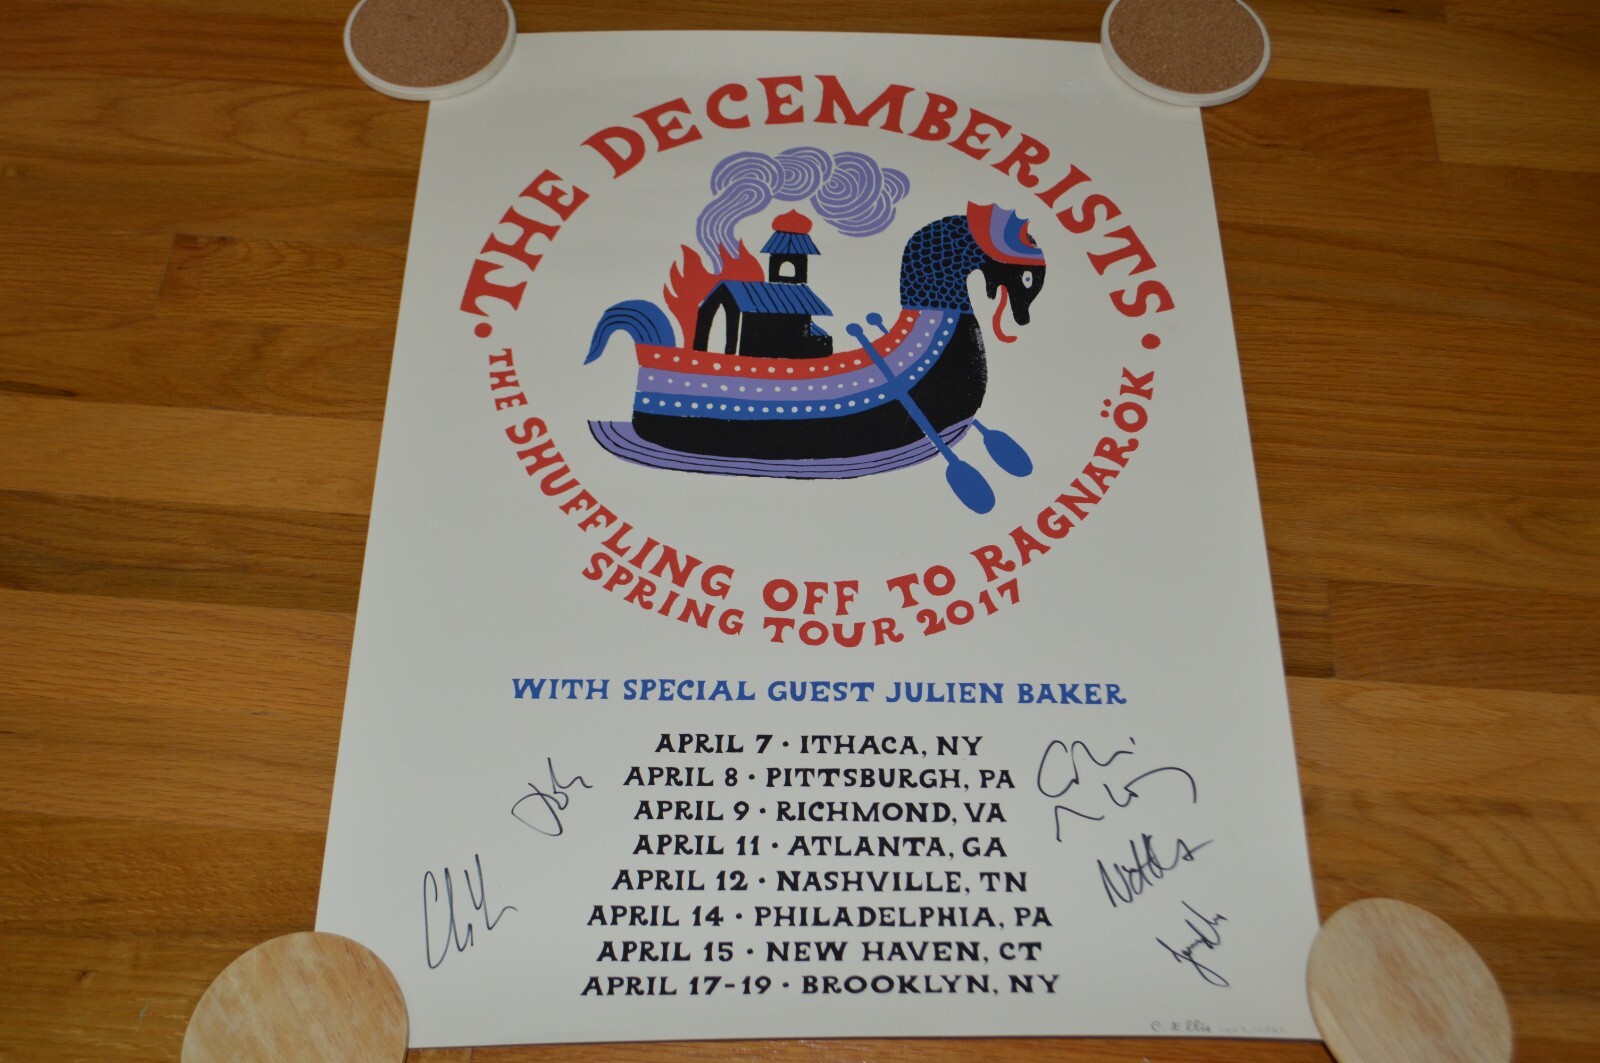 • THE DECEMBERISTS •
THE SHUFFLING OFF TO RAGNARÖK
SPRING TOUR 2017
WITH SPECIAL GUEST JULIEN BAKER
APRIL 7 • ITHACA, NY
APRIL 8 • PITTSBURGH, PA
APRIL 9 • RICHMOND, VA
APRIL 11 • ATLANTA, GA
APRIL 12 • NASHVILLE, TN
APRIL 14 • PHILADELPHIA, PA
APRIL 15 • NEW HAVEN, CT
APRIL 17-19 • BROOKLYN, NY
C. Ellis